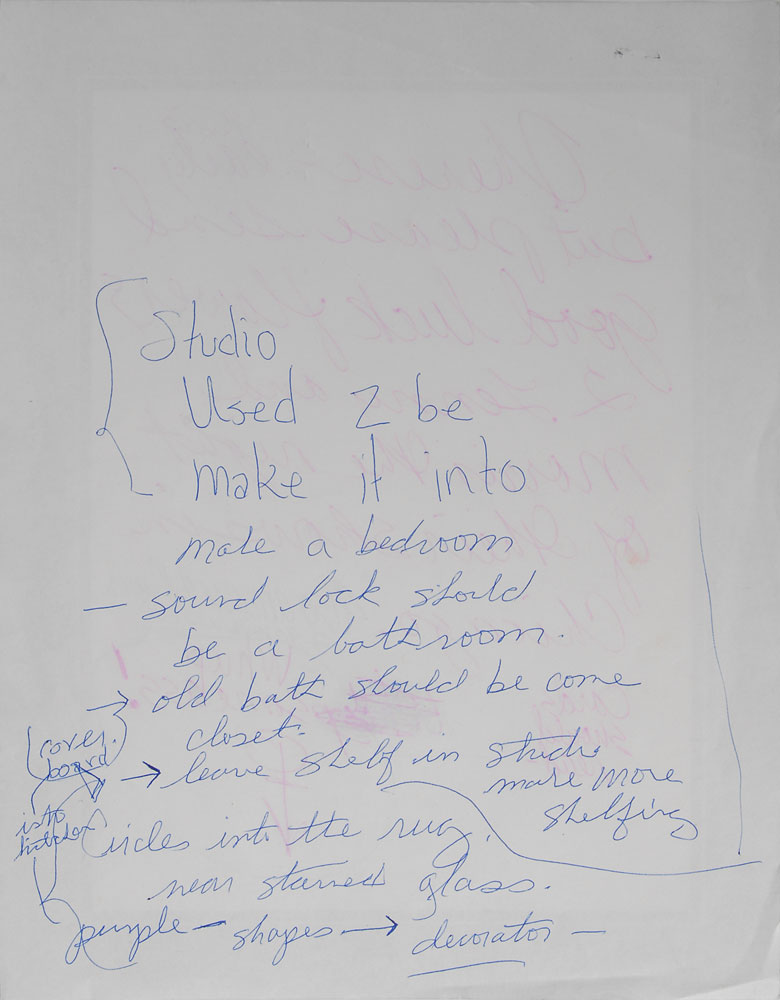 Studio
Used 2 be
make it into
make a bedroom
— sound lock should
be a bathroom.
→ old bath should be come
closet.
(cover.
board
→ leave shelf in studio
make more
shelfing
into
Circles into the rug.
near stained glass.
purple — shapes → decorator —